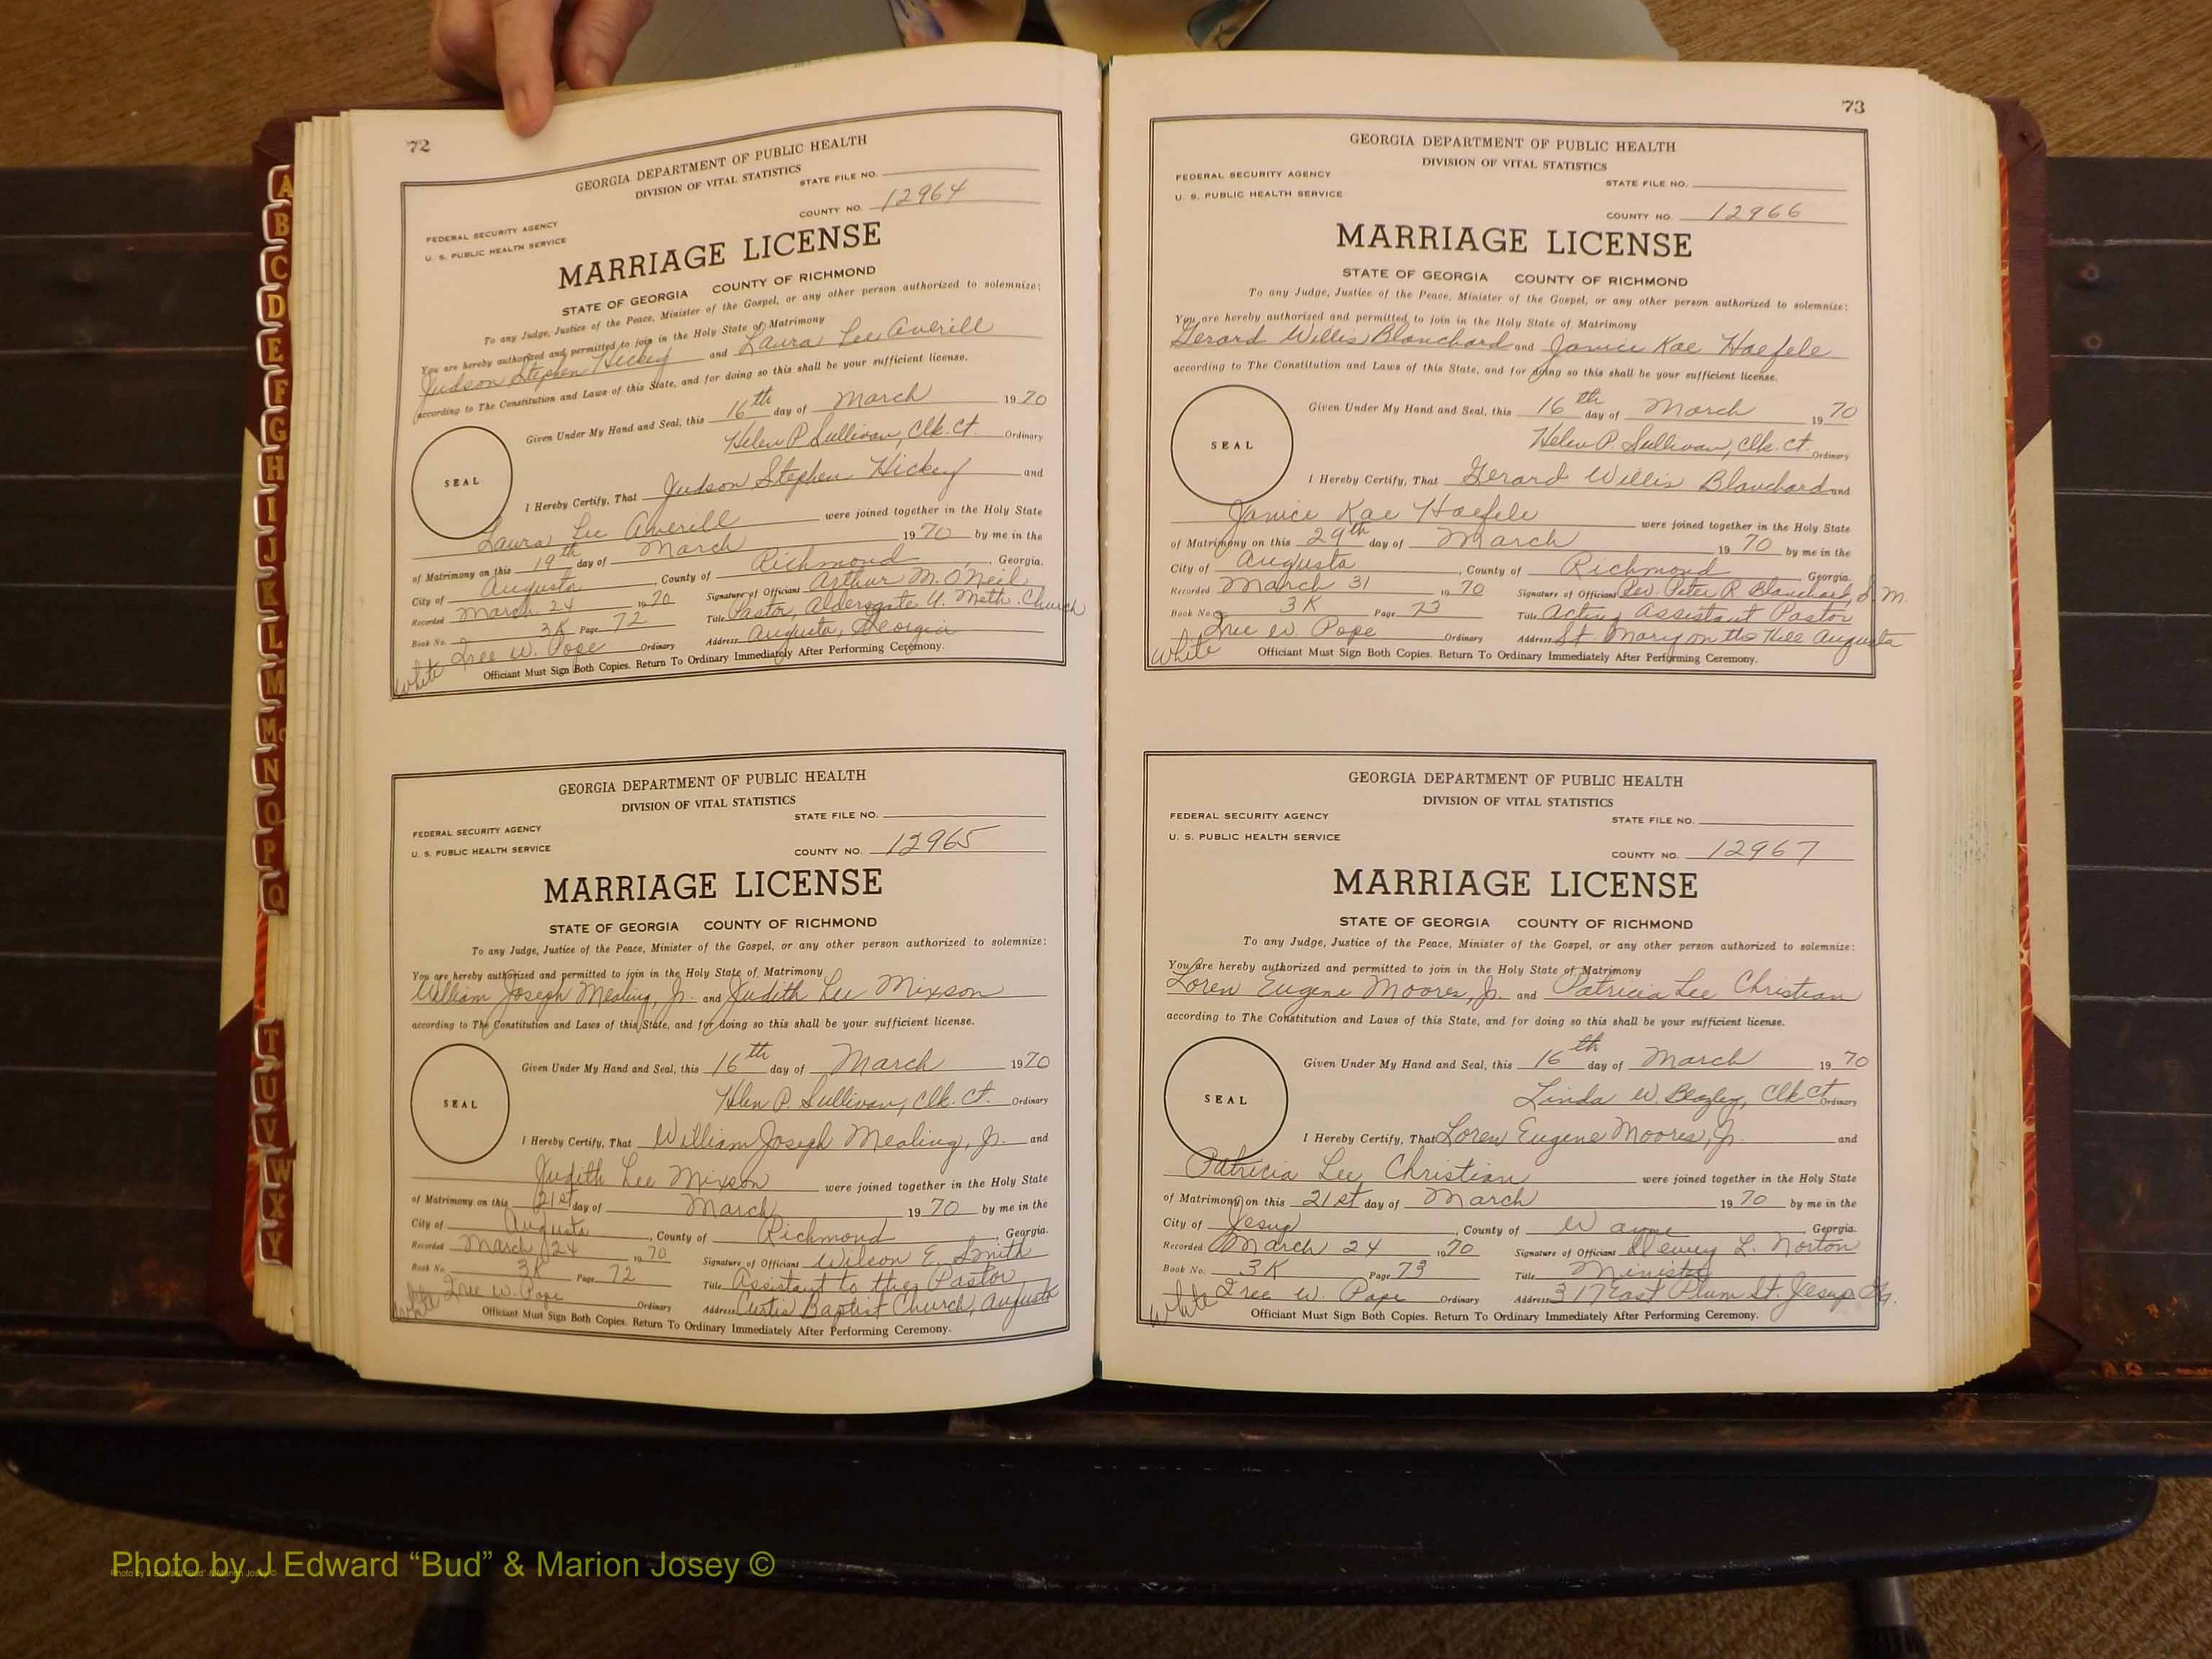 72
GEORGIA DEPARTMENT OF PUBLIC HEALTH
DIVISION OF VITAL STATISTICS
STATE FILE NO.
COUNTY NO. 12964
FEDERAL SECURITY AGENCY
U. S. PUBLIC HEALTH SERVICE
MARRIAGE LICENSE
STATE OF GEORGIA COUNTY OF RICHMOND
To any Judge, Justice of the Peace, Minister of the Gospel, or any other person authorized to solemnize:
You are hereby authorized and permitted to join in the Holy State of Matrimony
Judson Stephen Hickey and Laura Lee Averill
according to The Constitution and Laws of this State, and for doing so this shall be your sufficient license.
Given Under My Hand and Seal, this 16th day of March 1970
Helen P. Sullivan, Clk. Ct. Ordinary
SEAL
I Hereby Certify, That Judson Stephen Hickey and
Laura Lee Averill were joined together in the Holy State
of Matrimony on this 19th day of March 1970 by me in the
City of Augusta, County of Richmond, Georgia.
Recorded March 24 1970 Signature of Officiant Arthur M. O'Neil
Book No. 3K Page 72 Title Pastor, Aldersgate U. Meth. Church
Iree W. Pope Ordinary Address Augusta, Georgia
White Officiant Must Sign Both Copies. Return To Ordinary Immediately After Performing Ceremony.
GEORGIA DEPARTMENT OF PUBLIC HEALTH
DIVISION OF VITAL STATISTICS
STATE FILE NO.
FEDERAL SECURITY AGENCY
U. S. PUBLIC HEALTH SERVICE
COUNTY NO. 12965
MARRIAGE LICENSE
STATE OF GEORGIA COUNTY OF RICHMOND
To any Judge, Justice of the Peace, Minister of the Gospel, or any other person authorized to solemnize:
You are hereby authorized and permitted to join in the Holy State of Matrimony
William Joseph Mealing, Jr. and Judith Lee Mixson
according to The Constitution and Laws of this State, and for doing so this shall be your sufficient license.
Given Under My Hand and Seal, this 16th day of March 1970
Helen P. Sullivan, Clk. Ct. Ordinary
SEAL
I Hereby Certify, That William Joseph Mealing, Jr. and
Judith Lee Mixson were joined together in the Holy State
of Matrimony on this 21st day of March 1970 by me in the
City of Augusta, County of Richmond, Georgia.
Recorded March 24 1970 Signature of Officiant Wilson E. Smith
Book No. 3K Page 72 Title Assistant to the Pastor
Iree W. Pope Ordinary Address Curtis Baptist Church, Augusta
White Officiant Must Sign Both Copies. Return To Ordinary Immediately After Performing Ceremony.
73
GEORGIA DEPARTMENT OF PUBLIC HEALTH
DIVISION OF VITAL STATISTICS
FEDERAL SECURITY AGENCY
STATE FILE NO.
U. S. PUBLIC HEALTH SERVICE
COUNTY NO. 12966
MARRIAGE LICENSE
STATE OF GEORGIA COUNTY OF RICHMOND
To any Judge, Justice of the Peace, Minister of the Gospel, or any other person authorized to solemnize:
You are hereby authorized and permitted to join in the Holy State of Matrimony
Gerard Willis Blanchard and Janice Kae Haefele
according to The Constitution and Laws of this State, and for doing so this shall be your sufficient license.
Given Under My Hand and Seal, this 16th day of March 1970
Helen P. Sullivan, Clk. Ct. Ordinary
SEAL
I Hereby Certify, That Gerard Willis Blanchard and
Janice Kae Haefele were joined together in the Holy State
of Matrimony on this 29th day of March 1970 by me in the
City of Augusta, County of Richmond, Georgia.
Recorded March 31 1970 Signature of Officiant Rev. Peter R Blanchard, S.M.
Book No. 3K Page 73 Title Acting Assistant Pastor
Iree W. Pope Ordinary Address St Mary on the Hill Augusta
White Officiant Must Sign Both Copies. Return To Ordinary Immediately After Performing Ceremony.
GEORGIA DEPARTMENT OF PUBLIC HEALTH
DIVISION OF VITAL STATISTICS
FEDERAL SECURITY AGENCY
STATE FILE NO.
U. S. PUBLIC HEALTH SERVICE
COUNTY NO. 12967
MARRIAGE LICENSE
STATE OF GEORGIA COUNTY OF RICHMOND
To any Judge, Justice of the Peace, Minister of the Gospel, or any other person authorized to solemnize:
You are hereby authorized and permitted to join in the Holy State of Matrimony
Loren Eugene Moores, Jr. and Patricia Lee Christian
according to The Constitution and Laws of this State, and for doing so this shall be your sufficient license.
Given Under My Hand and Seal, this 16th day of March 1970
Linda W. Beazley, Clk Ct. Ordinary
SEAL
I Hereby Certify, That Loren Eugene Moores, Jr. and
Patricia Lee Christian were joined together in the Holy State
of Matrimony on this 21st day of March 1970 by me in the
City of Jesup, County of Wayne, Georgia.
Recorded March 24 1970 Signature of Officiant Dewey L. Norton
Book No. 3K Page 73 Title Minister
Iree W. Pope Ordinary Address 317 East Plum St. Jesup Ga.
White Officiant Must Sign Both Copies. Return To Ordinary Immediately After Performing Ceremony.
A
B
C
D
E
F
G
H
I
J
K
L
M
Mc
N
O
P
Q
T
U
V
W
X
Y
Photo by J Edward “Bud” & Marion Josey ©